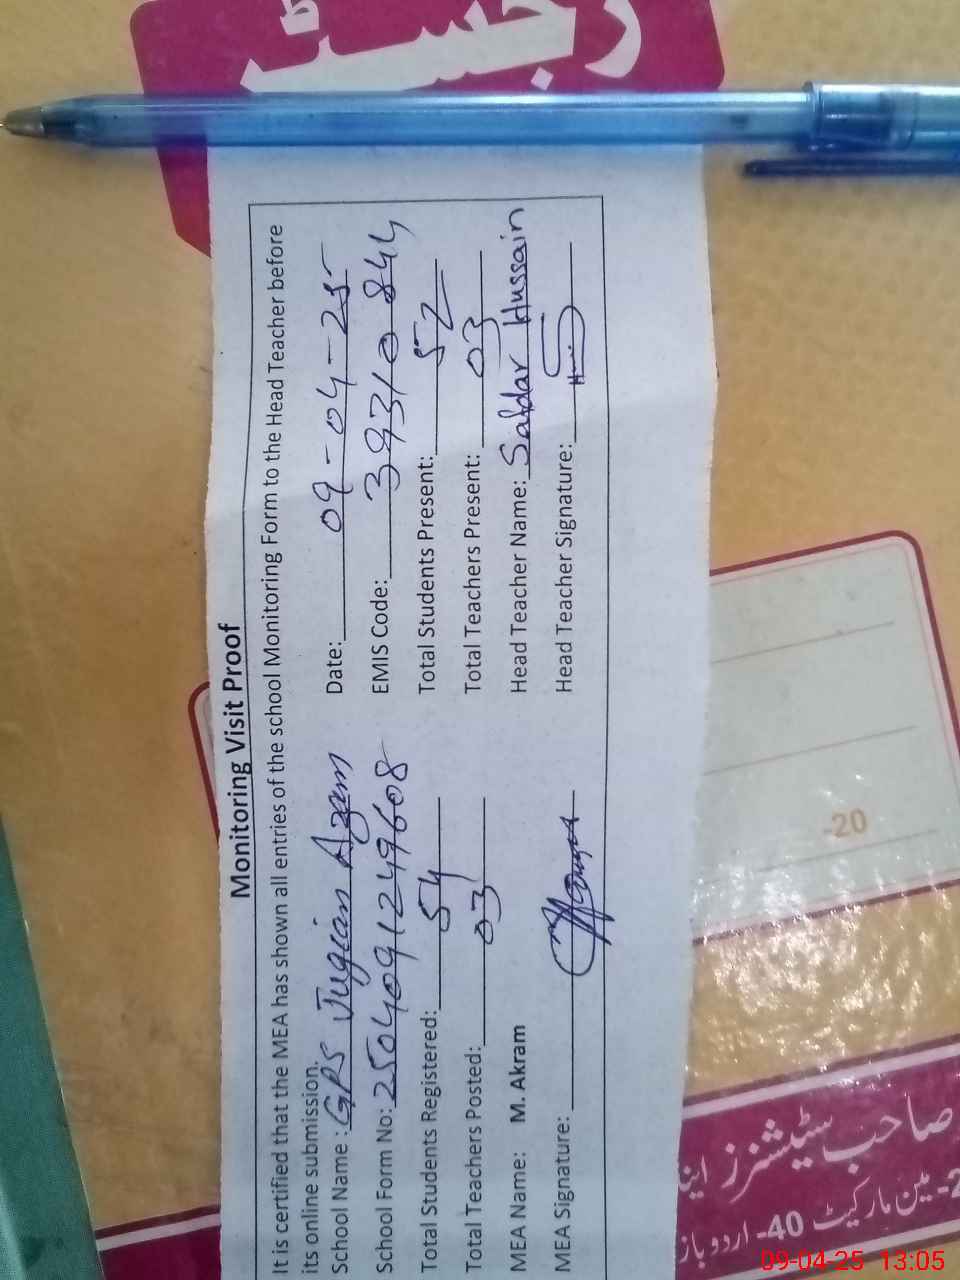 رجسٹر
Monitoring Visit Proof
It is certified that the MEA has shown all entries of the school Monitoring Form to the Head Teacher before
its online submission.
School Name : GPS Jugian Azam Date: 09-04-25
School Form No: 2504091249608 EMIS Code: 39310844
Total Students Registered: 54 Total Students Present: 52
Total Teachers Posted: 03 Total Teachers Present: 03
MEA Name: M. Akram Head Teacher Name: Safdar Hussain
MEA Signature: Head Teacher Signature:
-20
صاحب سٹیشنرز اینڈ
2- مین مارکیٹ 40- اردو بازار
09-04-25 13:05